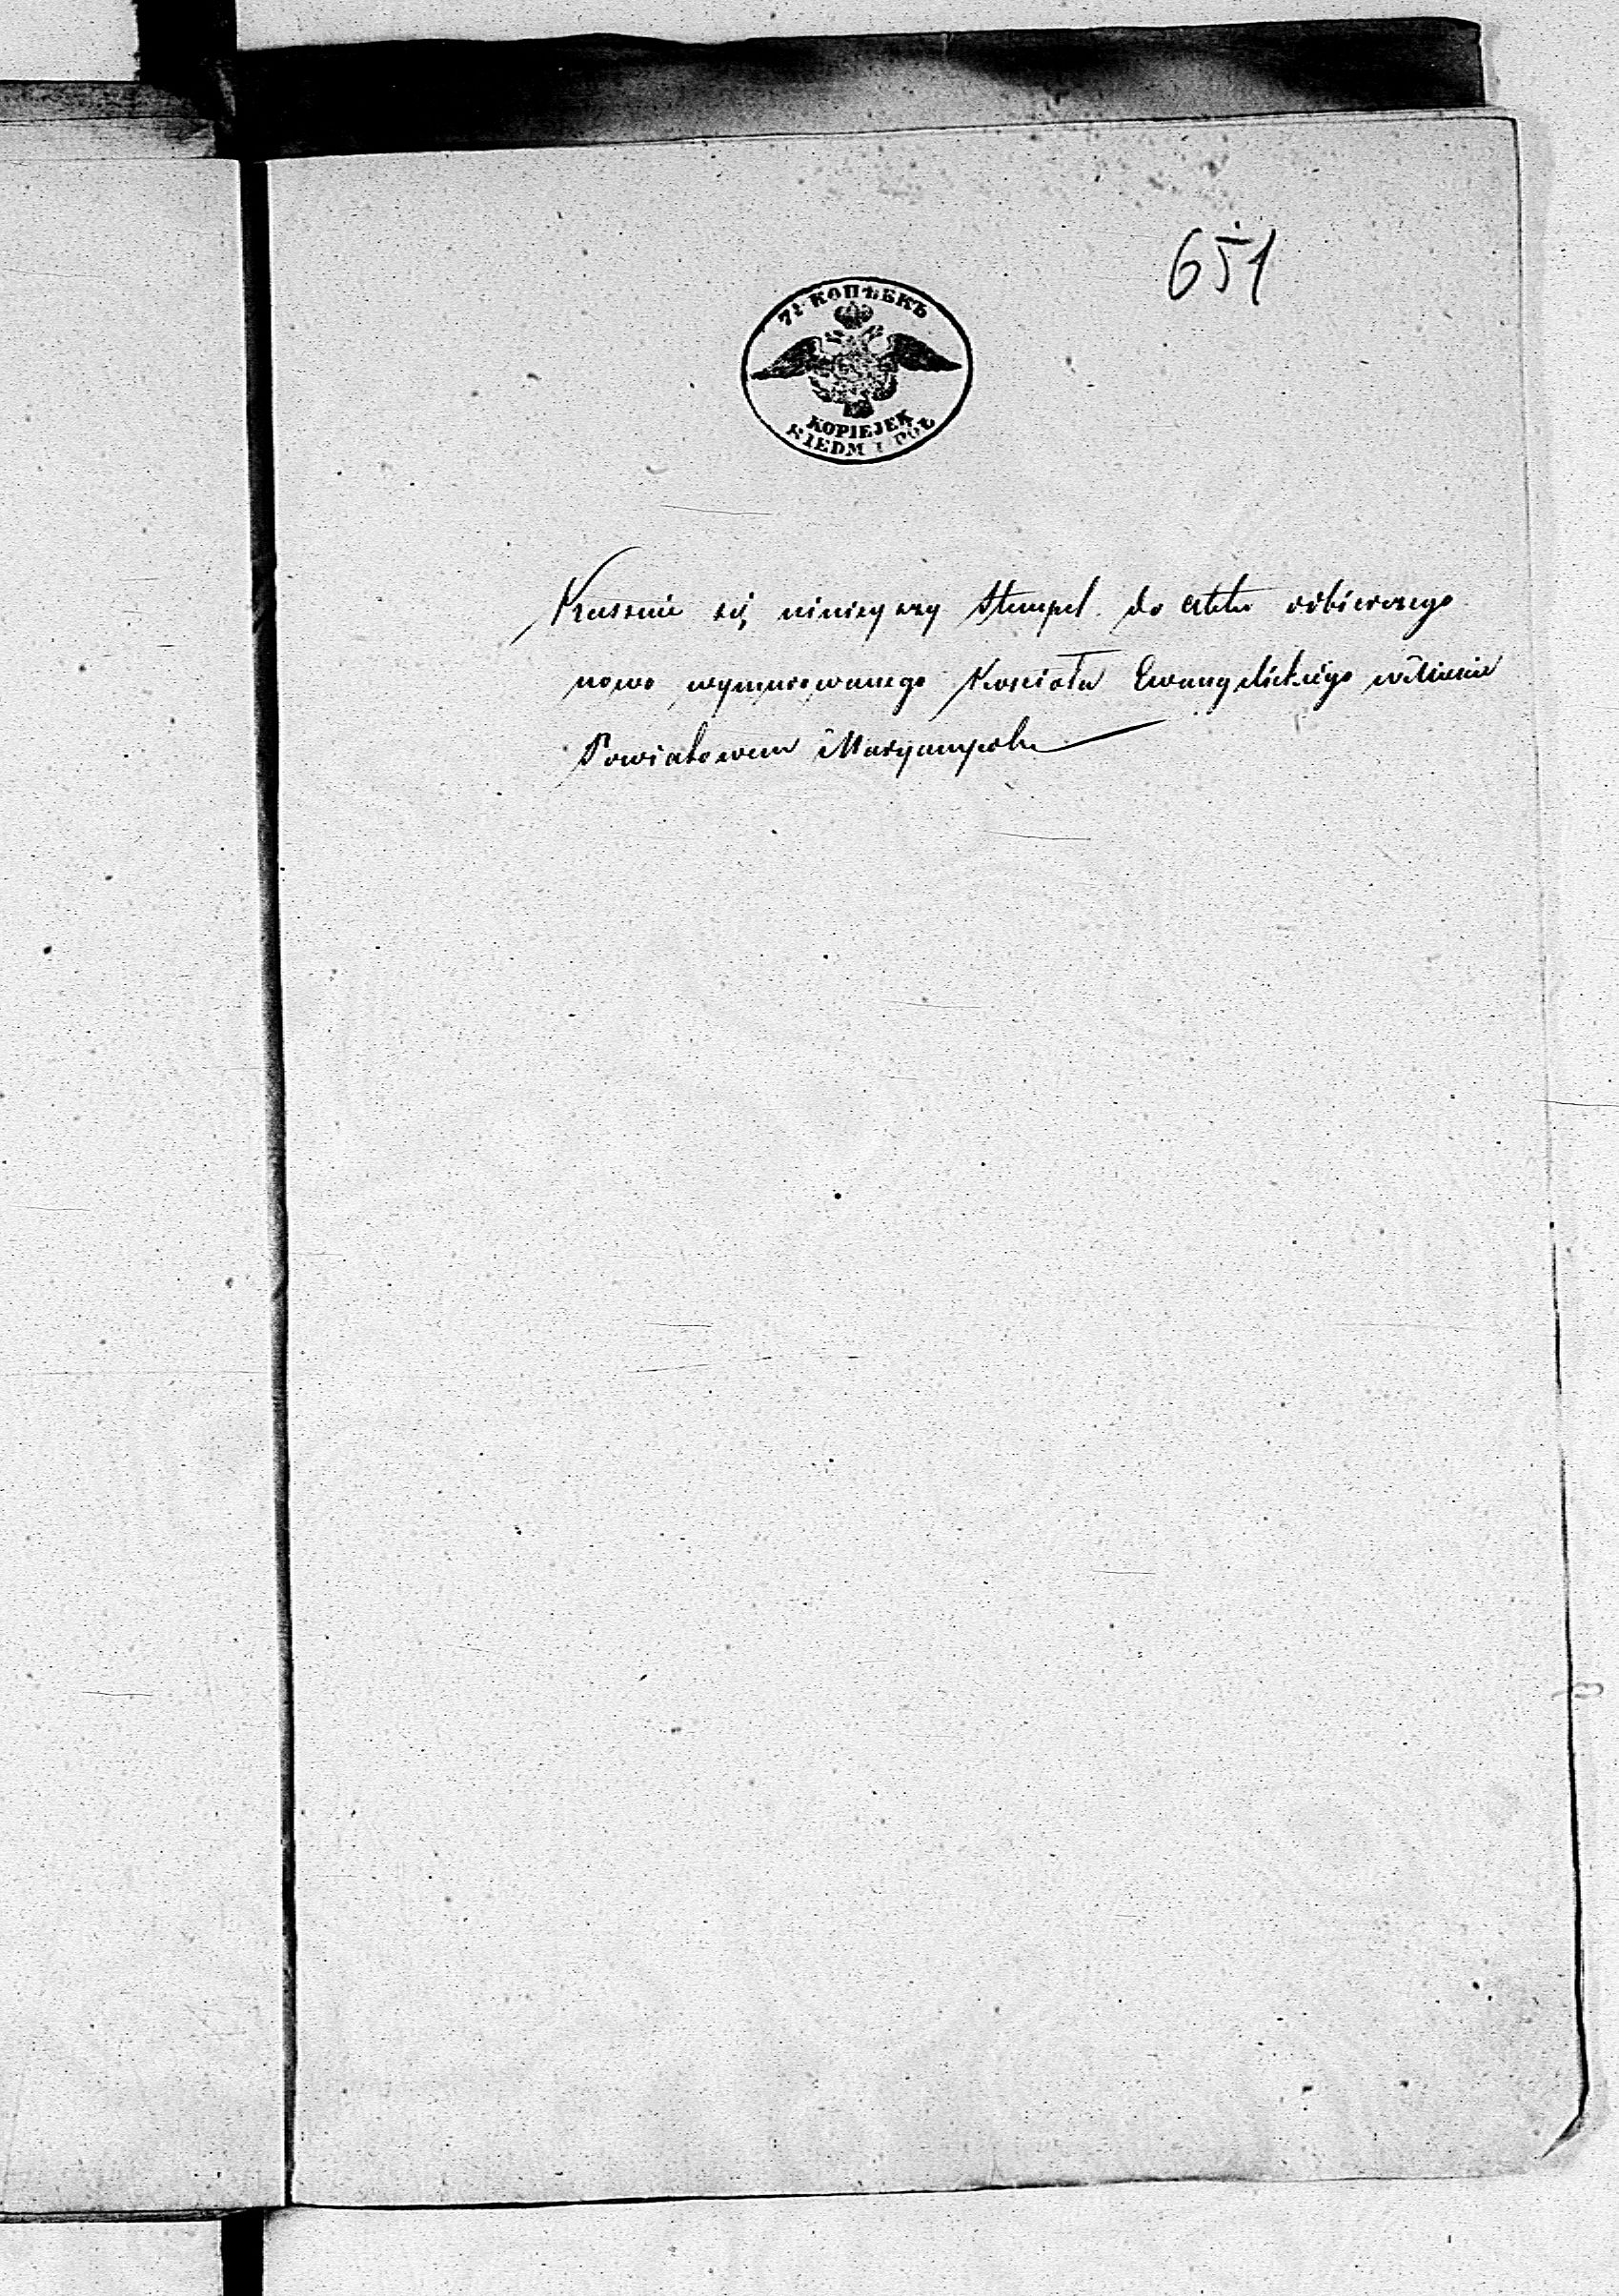 651
7½ КОПѢЕКЪ
KOPIEJEK
SIEDM I PÓŁ
Kassuie się niniejszy Stempel do Aktu odbiorczego
nowo wymurowanego Kościoła Ewangelickiego w Mieście
Powiatowem Maryampolu